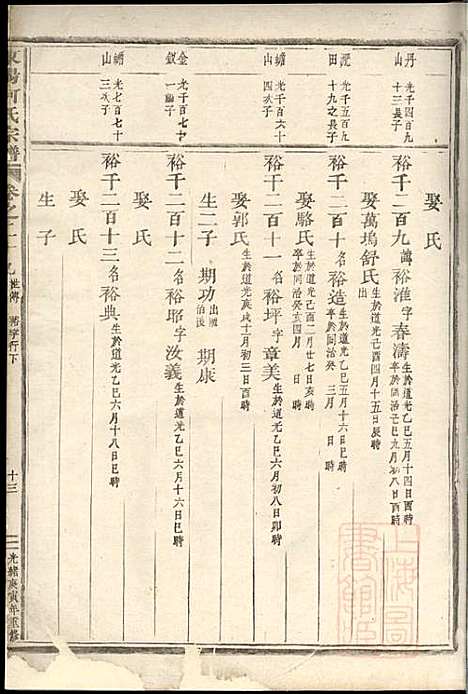 丹山 光千四百九十三長子
娶氏
裕千二百九 諱裕淮字春濤 生於道光乙巳五月十四日酉時 卒於同治己巳九月初八日酉時
娶萬塢舒氏 生於道光己酉四月十五日辰時
光千五百九十九之長子
裕千二百十 名裕造 生於道光乙巳 卒於同治癸 三月 日 時
娶駱氏 生於道光己酉二月廿七日亥時 卒於同治癸亥四月
蟾山 光千百六十四次子
裕千二百十一 名裕坪字章美 生於道光乙巳六月初八日卯時
娶郭氏 生於道光庚戌十一月初三日酉時
金釵 光千百七十一繼子
裕千二百十二 名裕耶字汝義 生於道光乙巳六月十六日巳時
生二子 期功 出繼 期康
蟾山 光七百七十三次子
裕千二百十三 名裕典 生於道光乙巳六月十八日巳時
娶氏
生子
東陽何氏宗譜 卷之二十 九世傳 裕字行下 十三 光緒庚寅年重修
上海圖書館藏